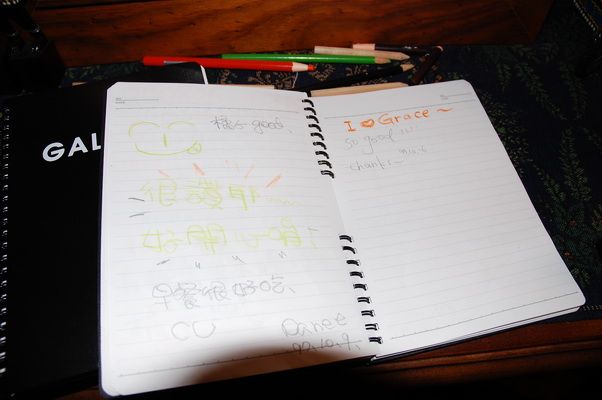 GAL
good.
很讚
好開心唷!
早餐很好吃、
Danee
97.10.9.
I ♥ Grace ~
so good !!!